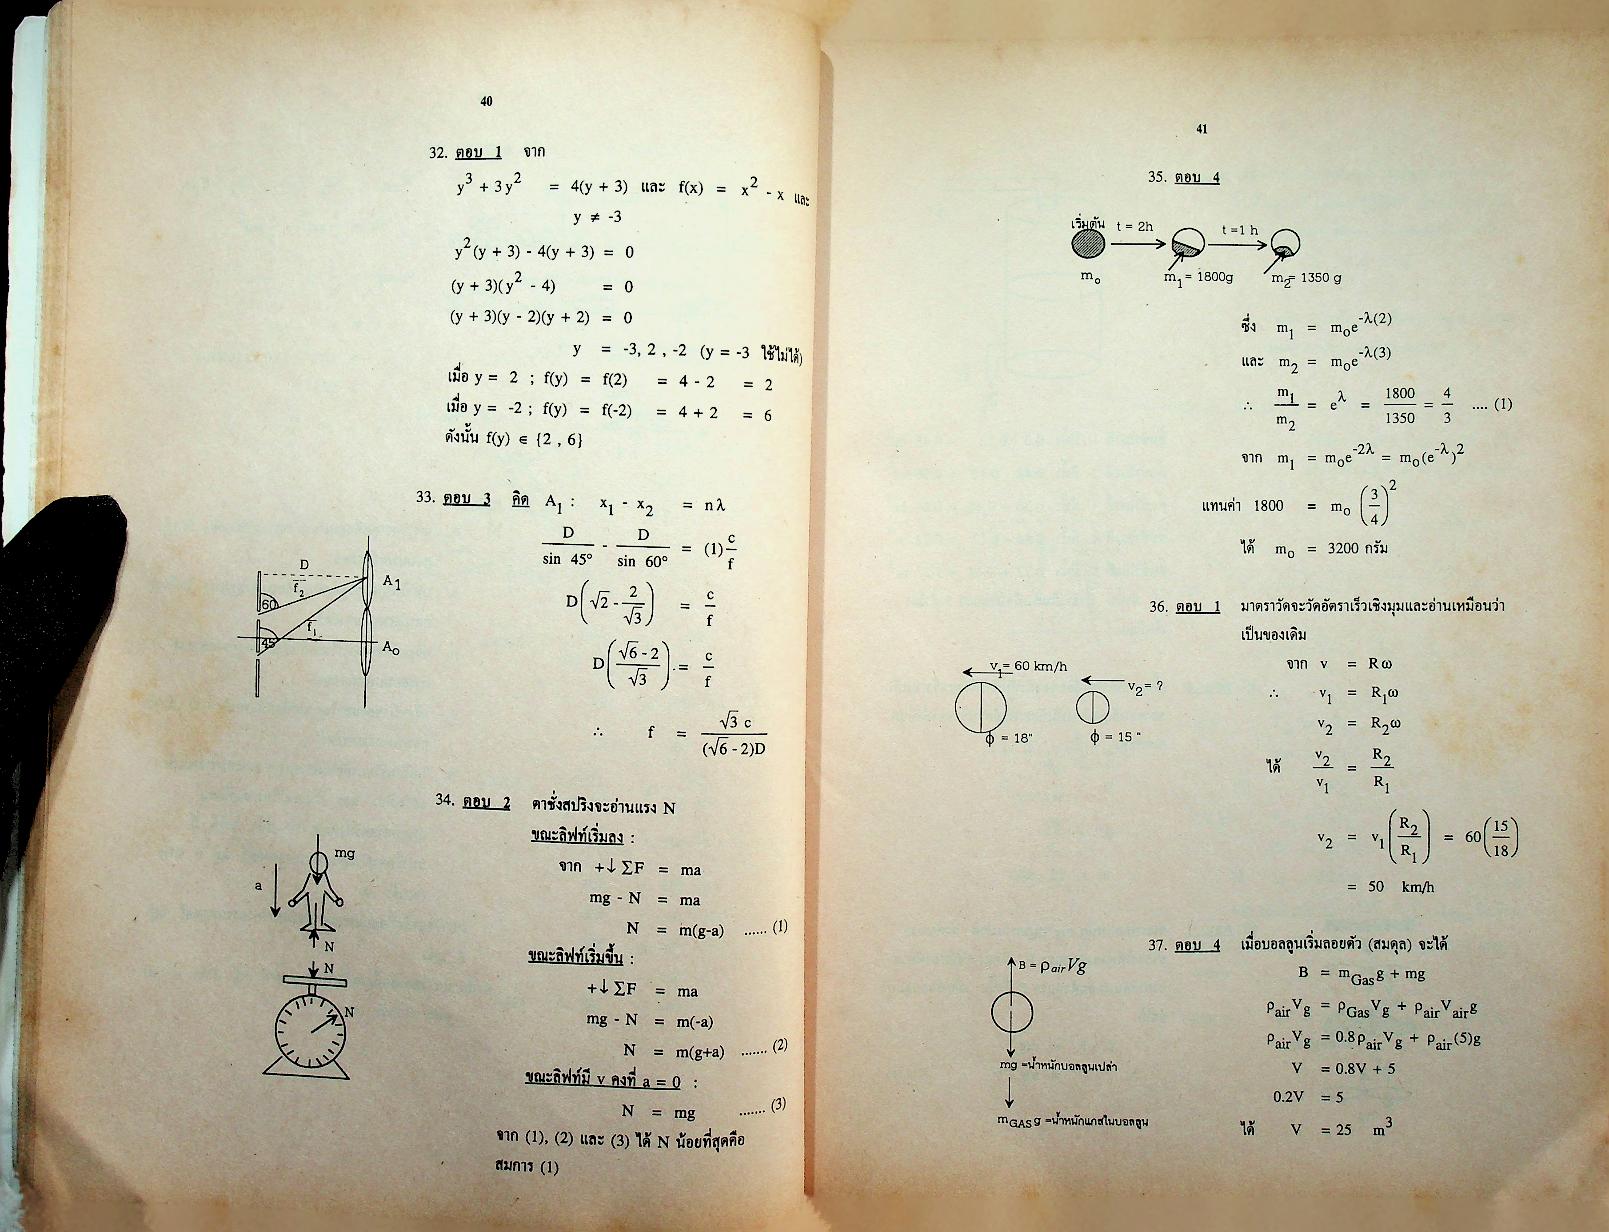 40
32. ตอบ 1 จาก
y³ + 3y² = 4(y + 3) และ f(x) = x² - x และ
y ≠ -3
y²(y + 3) - 4(y + 3) = 0
(y + 3)(y² - 4) = 0
(y + 3)(y - 2)(y + 2) = 0
y = -3, 2 , -2 (y = -3 ใช้ไม่ได้)
เมื่อ y = 2 ; f(y) = f(2) = 4 - 2 = 2
เมื่อ y = -2 ; f(y) = f(-2) = 4 + 2 = 6
ดังนั้น f(y) ∈ {2 , 6}
33. ตอบ 3 คิด A₁ : x₁ - x₂ = nλ
D/sin 45° - D/sin 60° = (1)c/f
D(√2 - 2/√3) = c/f
D((√6 - 2)/√3) = c/f
∴ f = √3 c/((√6 - 2)D)
D
f₂
60
A₁
f₁
45
A₀
34. ตอบ 2 ตาชั่งสปริงจะอ่านแรง N
ขณะลิฟท์เริ่มลง :
จาก +↓ ΣF = ma
mg - N = ma
N = m(g-a) ...... (1)
ขณะลิฟท์เริ่มขึ้น :
+↓ ΣF = ma
mg - N = m(-a)
N = m(g+a) ....... (2)
ขณะลิฟท์มี v คงที่ a = 0 :
N = mg ....... (3)
จาก (1), (2) และ (3) ได้ N น้อยที่สุดคือ
สมการ (1)
mg
a
N
N
N
41
35. ตอบ 4
เริ่มต้น t = 2h t =1 h
m₀ m₁ = 1800g m₂ = 1350 g
ซึ่ง m₁ = m₀e^-λ(2)
และ m₂ = m₀e^-λ(3)
∴ m₁/m₂ = e^λ = 1800/1350 = 4/3 .... (1)
จาก m₁ = m₀e^-2λ = m₀(e^-λ)²
แทนค่า 1800 = m₀ (3/4)²
ได้ m₀ = 3200 กรัม
36. ตอบ 1 มาตราวัดจะวัดอัตราเร็วเชิงมุมและอ่านเหมือนว่า
เป็นของเดิม
จาก v = Rω
∴ v₁ = R₁ω
v₂ = R₂ω
ได้ v₂/v₁ = R₂/R₁
v₂ = v₁(R₂/R₁) = 60(15/18)
= 50 km/h
v₁= 60 km/h
v₂ = ?
ϕ = 18"
ϕ = 15 "
37. ตอบ 4 เมื่อบอลลูนเริ่มลอยตัว (สมดุล) จะได้
B = m_Gas g + mg
ρ_air Vg = ρ_Gas Vg + ρ_air V_air g
ρ_air Vg = 0.8ρ_air Vg + ρ_air(5)g
V = 0.8V + 5
0.2V = 5
ได้ V = 25 m³
B = ρ_air Vg
mg =น้ำหนักบอลลูนเปล่า
m_GAS g =น้ำหนักแกสในบอลลูน